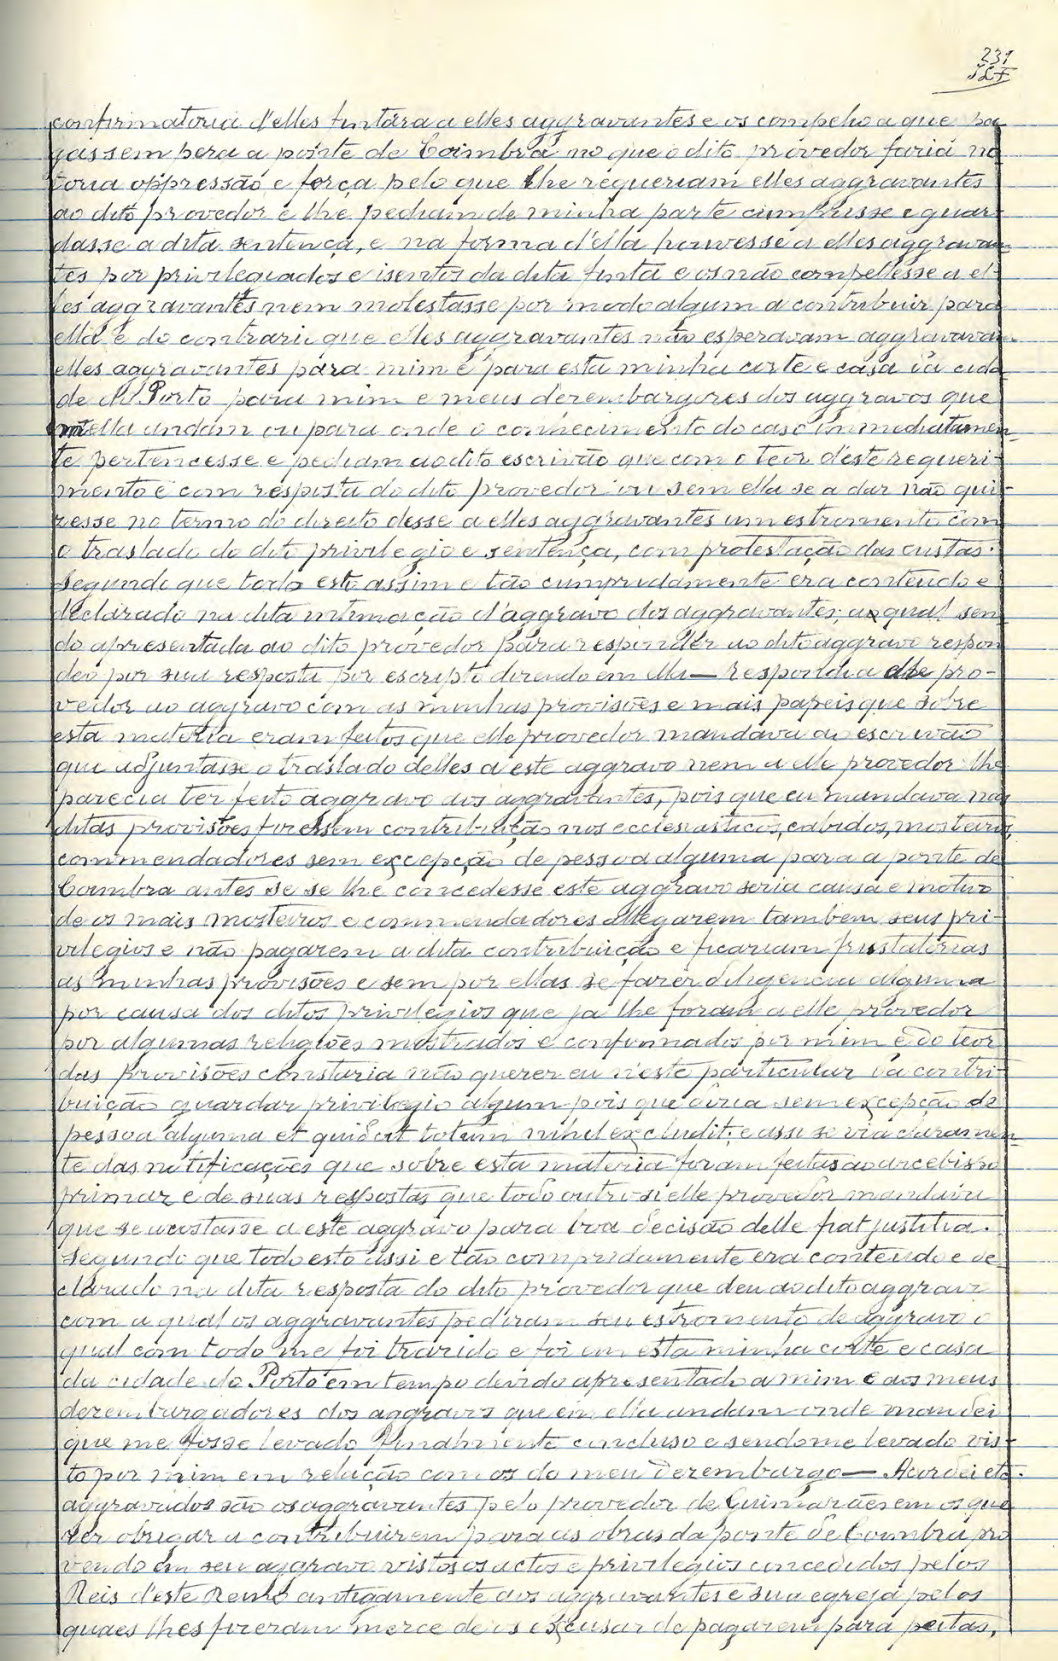 231
confirmatoria d'elles fintára a elles aggravantes e os compelio a que pa
gassem pera a ponte de Coimbra no que o dito provedor faria no
toria oppressão e força pelo que lhe requeriam elles aggravantes
ao dito provedor e lhe pediam de minha parte cumprisse e guar-
dasse a dita sentença, e na forma d'ella houvesse a elles aggravan
tes por privilegiados e isentos da dita finta e os não compellesse a el-
les aggravantes nem molestasse por modo algum a contribuir para
ella e do contrario que elles aggravantes não esperavam aggravavam
elles aggravantes para mim e para esta minha corte e casa da cida
de do Porto para mim e meus dezembargores dos aggravos que
n'ella andam ou para onde o conhecimento do caso immediatamen-
te pertencesse e pediam ao dito escrivão que com o teor d'este requeri-
mento e com resposta do dito provedor ou sem ella se a dar não qui-
zesse no termo do direito desse a elles aggravantes um estromento com
o traslado do dito privilegio e sentença, com protestação das custas.
Segundo que todo esto assim e tão cumpridamente era conteudo e
declarado na dita intimação d'aggravo dos aggravantes, a qual sen
do apresentada ao dito provedor para responder ao dito aggravo respon
deo por sua resposta por escripto dizendo em ella — respondia elle pro-
vedor ao aggravo com as minhas provisões e mais papeis que sobre
esta materia eram feitos que elle provedor mandava ao escrivão
que adjuntasse o traslado delles a este aggravo nem a elle provedor lhe
parecia ter feito aggravo aos aggravantes, pois que eu mandava nas
ditas provisões fizessem contribuição nos ecclesiasticos, cabidos, mosteiros,
commendadores sem excepção de pessoa alguma para a ponte de
Coimbra antes se se lhe concedesse este aggravo seria causa e motivo
de os mais mosteiros e commendadores allegarem tambem seus pri-
vilegios e não pagarem a dita contribuição e ficariam frustatorias
as minhas provisões e sem por ellas se fazer diligencia alguma
por causa dos ditos privilegios que já lhe foram a elle provedor
por algumas religiões mostrados e confirmados por mim e do teor
das provisões constaria não querer eu n'este particular da contri-
buição guardar privilegio algum pois que dizia sem excepção de
pessoa alguma et qui dicit totum nihil excludit; e assi se via claramen-
te das notificações que sobre esta materia foram feitas ao arcebispo
primaz e de suas respostas que todo outrosi elle provedor mandava
que se acostasse a este aggravo para boa decisão delle fiat justitia.
Segundo que todo esto assi e tão compridamente era conteudo e de
clarado na dita resposta do dito provedor que deu ao dito aggravo
com a qual os aggravantes pediram seu estromento de aggravo o
qual com todo me foi trazido e foi em esta minha corte e casa
da cidade do Porto em tempo devido apresentado a mim e aos meus
dezembargadores dos aggravos que em ella andam onde mandei
que me fosse levado finalmente concluso e sendo me levado vis-
to por mim em relação com os do meu dezembargo — Acordei etc.
aggravados são os aggravantes pelo provedor de Guimarães em os que
rer obrigar a contribuirem para as obras da ponte de Coimbra pro
vendo em seu aggravo vistos os actos e privilegios concedidos pelos
Reis d'este Reino antigamente aos aggravantes e sua egreja pelos
quaes lhes fizeram merce de os escusar de pagarem para peitas,